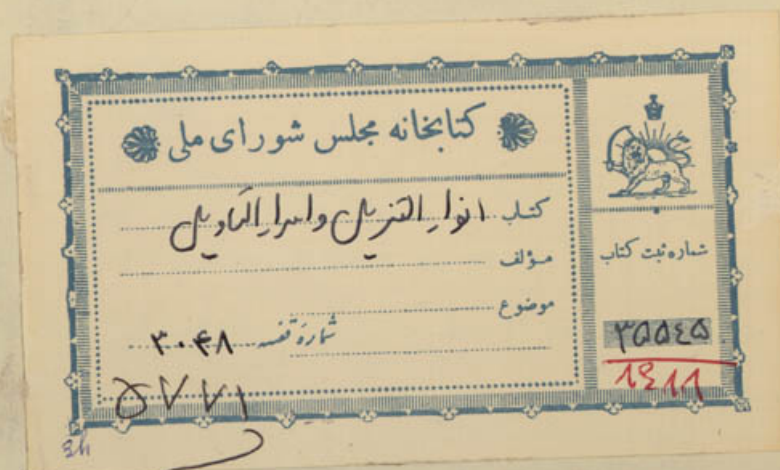 کتابخانه مجلس شورای ملی
کتاب انوار التنزیل و اسرار التاویل
مؤلف
موضوع
شماره قفسه ۳۰۴۸
۵۷۷۱
شماره ثبت کتاب
۳۵۵٤۵